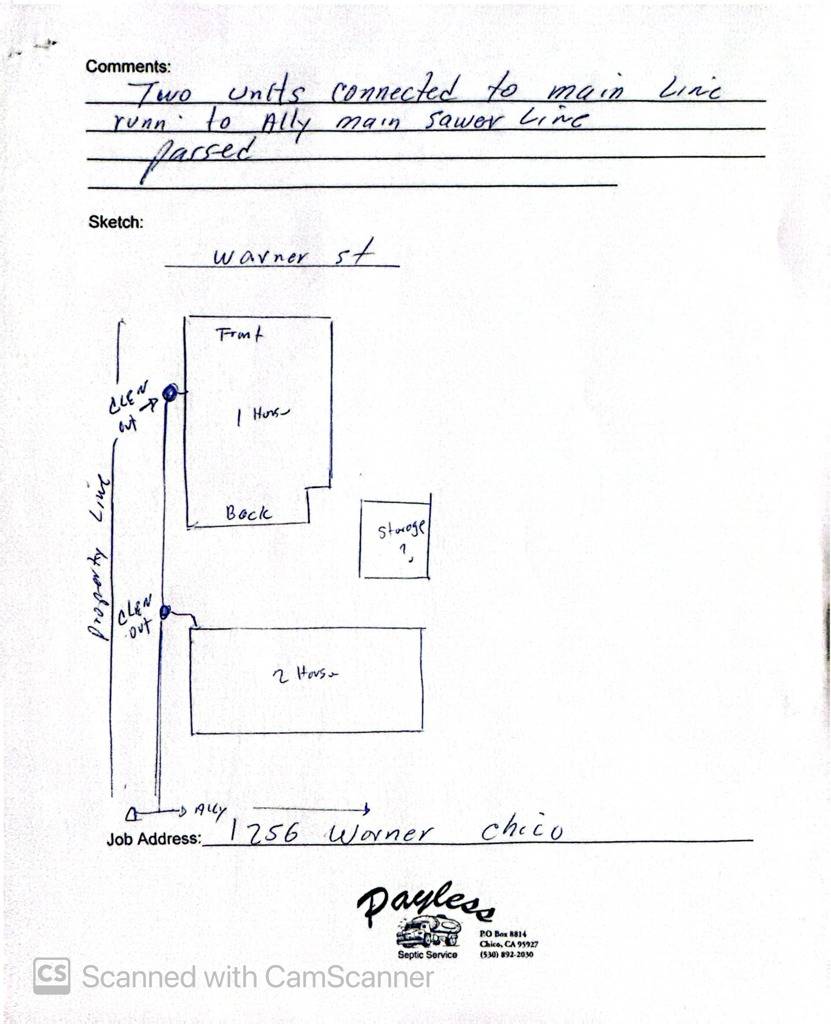 Comments:
Two units connected to main Line
runn. to Ally main sawer Line
passed
Sketch:
Warner st
Front
CLEN
out
1 House
Back
Storage
?
Property Line
CLEN
out
2 House
Ally
Job Address: 1256 Warner Chico
Payless
Septic Service
PO Box 8814
Chico, CA 95927
(530) 892-2030
CS Scanned with CamScanner